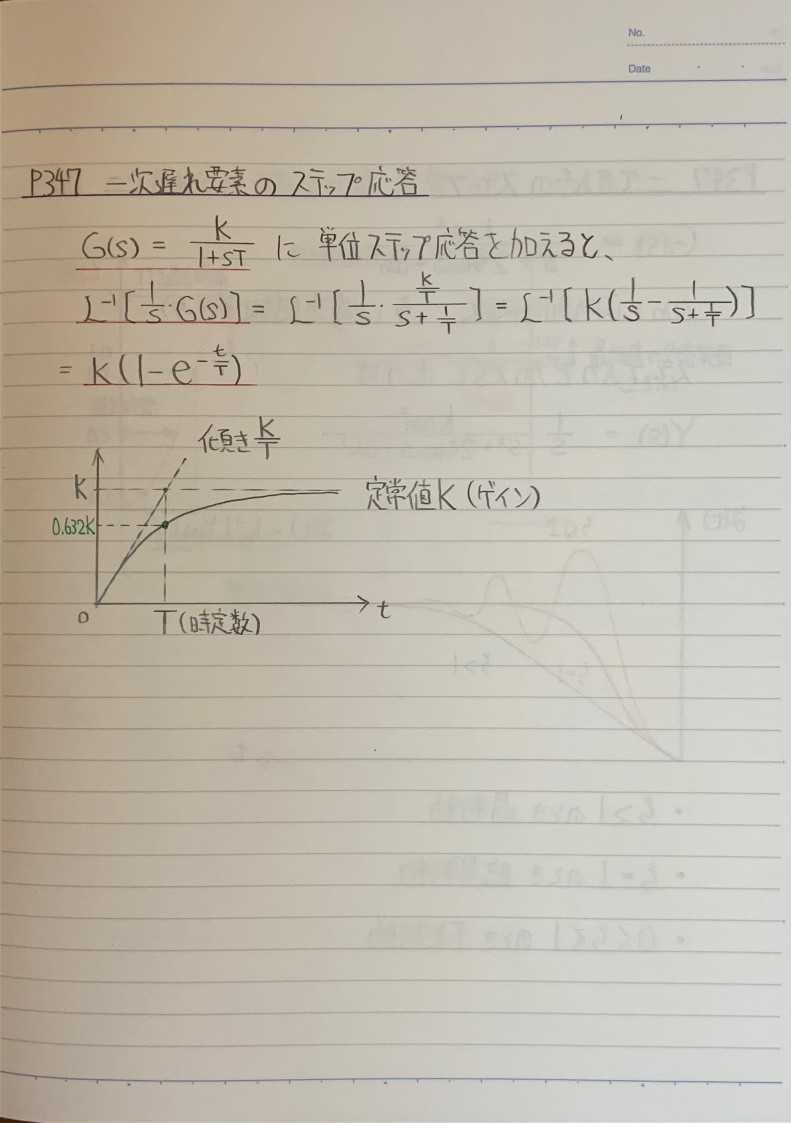 No.
Date
P347 一次遅れ要素の ステップ応答
G(s) = K/(1+sT) に 単位ステップ応答を加えると、
L⁻¹[1/s・G(s)] = L⁻¹[1/s・(K/T)/(s+1/T)] = L⁻¹[K(1/s－1/(s+1/T))]
= K(1－e^(－t/T))
傾き K/T
K
定常値K (ゲイン)
0.632K
0
T(時定数)
t